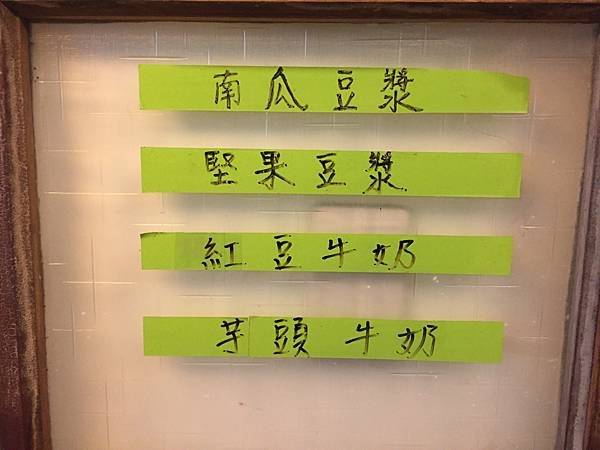 南瓜豆漿
堅果豆漿
紅豆牛奶
芋頭牛奶